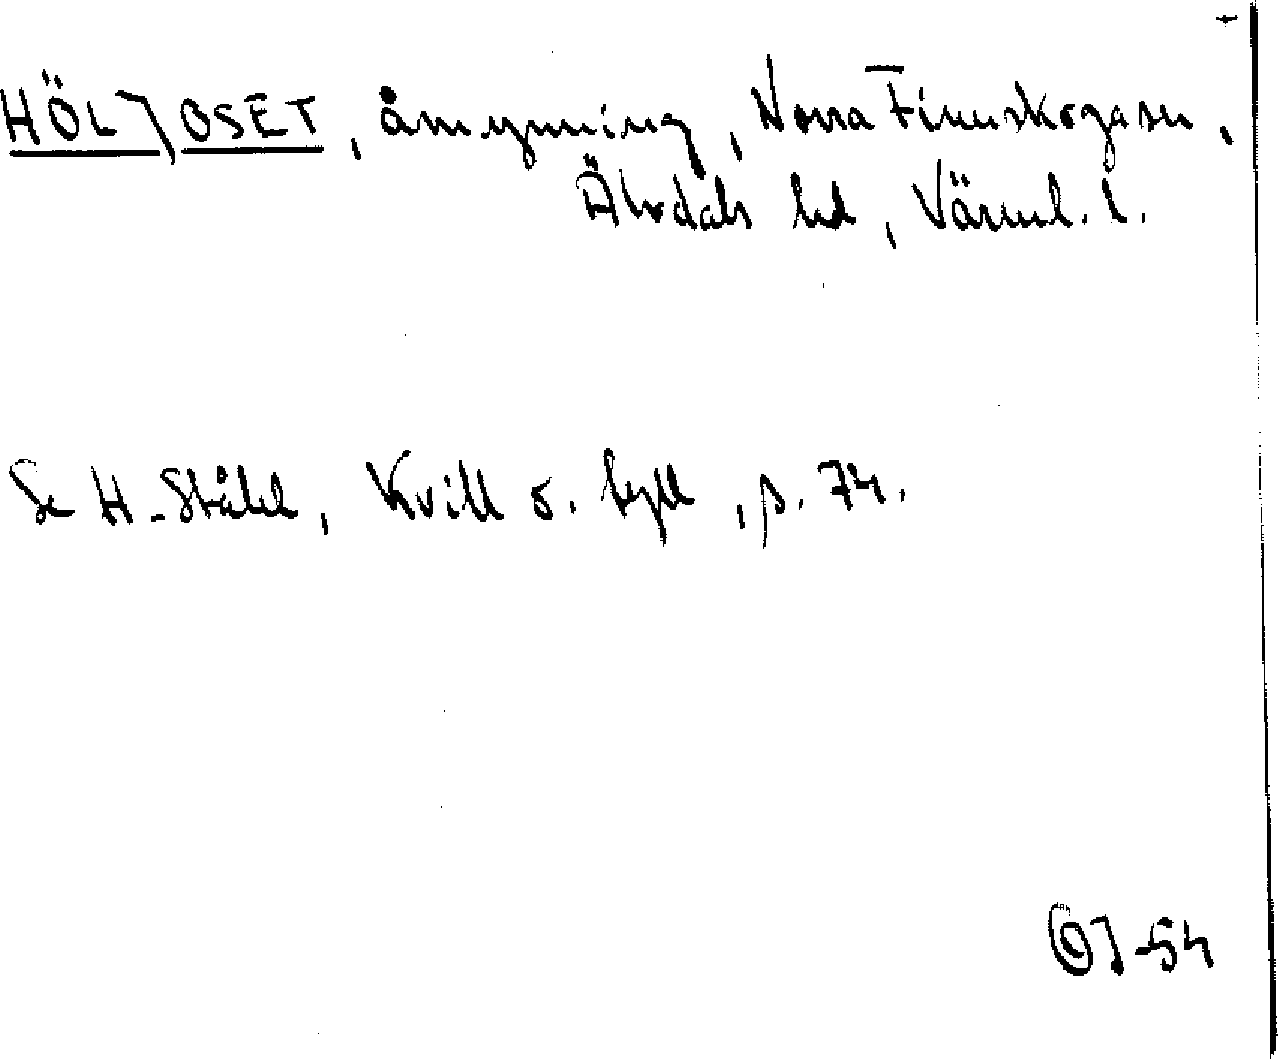 HÖLJOSET, åmynning, Norra Finnskogasn,
Älvdals hd, Värml. l.
Se H. Ståhl, Kvill o. tyll, p. 74.
-54